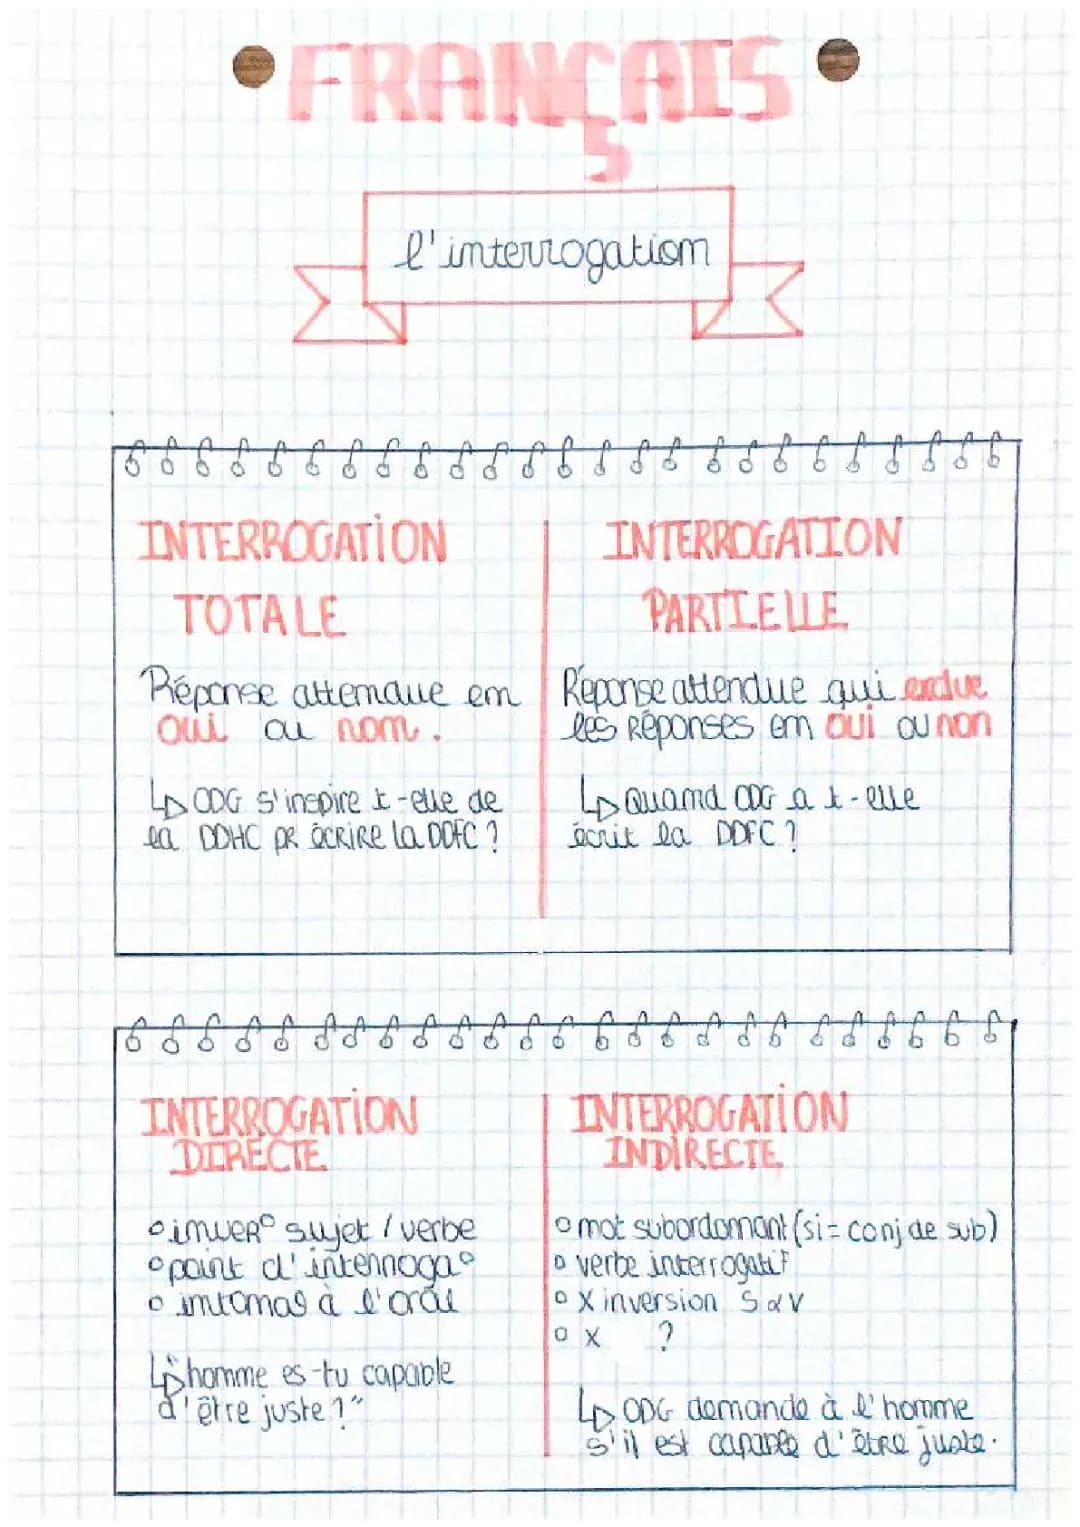 FRANÇAIS
l'interrogation
INTERROGATION
TOTALE
Réponse attendue en
oui ou non.
↳ ODG s'inspire t-elle de
la DDHC pr écrire la DDFC ?
INTERROGATION
PARTIELLE
Réponse attendue qui exclue
les réponses en oui ou non
↳ Quand ODG a t-elle
écrit la DDFC ?
INTERROGATION
DIRECTE
o inver° sujet / verbe
o point d'interroga°
o intona° à l'oral
↳ "homme es-tu capable
d'être juste ?"
INTERROGATION
INDIRECTE
o mot subordonnant (si = conj de sub)
o verbe interrogatif
o X inversion S & V
o X ?
↳ ODG demande à l'homme
s'il est capable d'être juste.